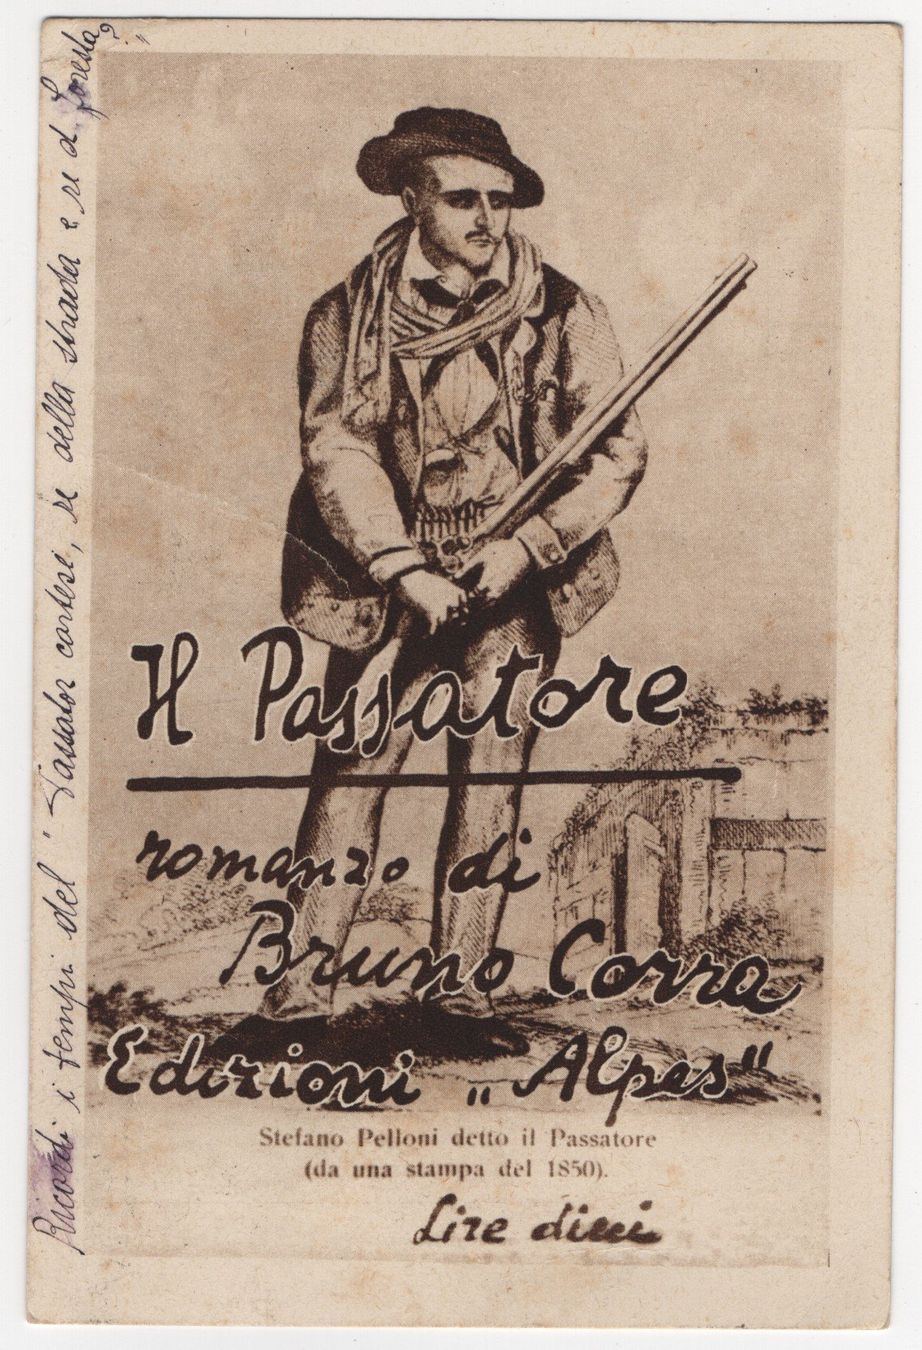 Ricordi i tempi del "Passator cortese, re della strada e re d foresta"?
Il Passatore
romanzo di
Bruno Corra
Edizioni „Alpes"
Stefano Pelloni detto il Passatore
(da una stampa del 1850).
Lire dieci